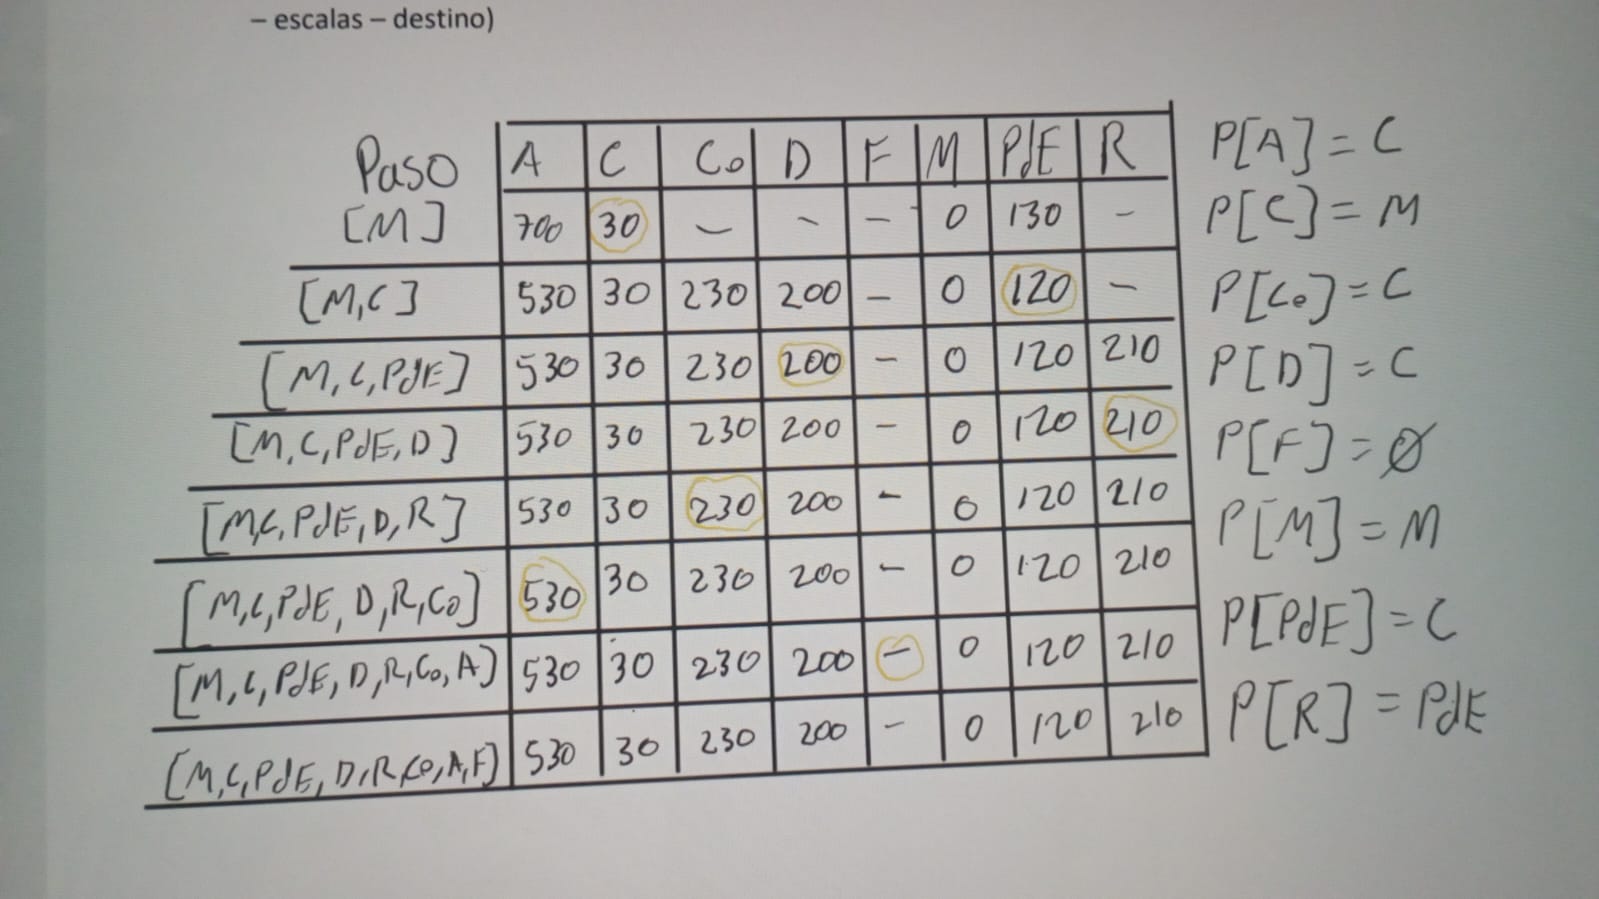 – escalas – destino)
Paso A C Co D F M PdE R
[M] 700 30 – – – 0 130 –
[M,C] 530 30 230 200 – 0 120 –
[M,C,PdE] 530 30 230 200 – 0 120 210
[M,C,PdE,D] 530 30 230 200 – 0 120 210
[M,C,PdE,D,R] 530 30 230 200 – 0 120 210
[M,C,PdE,D,R,Co] 530 30 230 200 – 0 120 210
[M,C,PdE,D,R,Co,A] 530 30 230 200 – 0 120 210
[M,C,PdE,D,R,Co,A,F] 530 30 230 200 – 0 120 210
P[A] = C
P[C] = M
P[Co] = C
P[D] = C
P[F] = Ø
P[M] = M
P[PdE] = C
P[R] = PdE